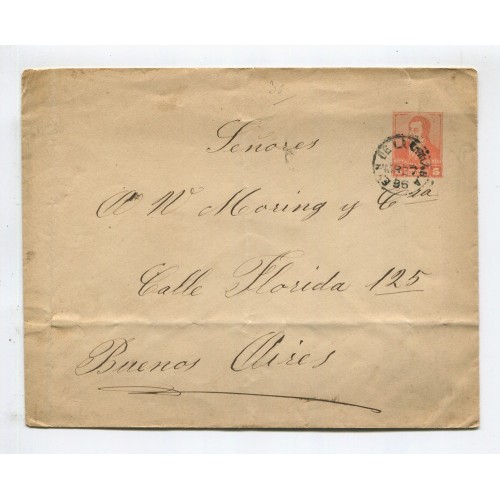 Señores
A W Moring y Cia
Calle Florida 125
Buenos Aires
DE LA
96
5